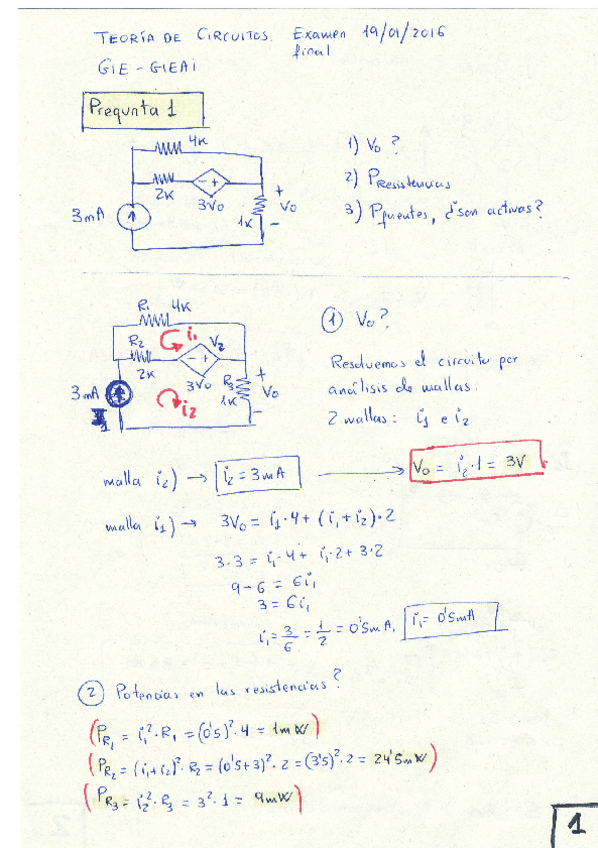 TEORÍA DE CIRCUITOS. Examen 19/01/2016
final
GIE - GIEAI
Pregunta 1
4K
2K
3V0
3mA
1K
+
V0
-
- +
1) V0?
2) PResistencias
3) Pfuentes, ¿son activas?
R1 4K
i1
R2
V2
2K
- +
3V0
R3
1K
+
V0
-
3mA
I1
i2
① V0?
Resolvemos el circuito por
análisis de mallas.
2 mallas: i1 e i2
malla i2) → i2 = 3mA → V0 = i2·1 = 3V
malla i1) → 3V0 = i1·4 + (i1+i2)·2
3·3 = i1·4 + i1·2 + 3·2
9-6 = 6i1
3 = 6i1
i1 = 3/6 = 1/2 = 0'5mA, i1 = 0'5mA
② Potencias en las resistencias?
(PR1 = i1²·R1 = (0'5)²·4 = 1mW)
(PR2 = (i1+i2)²·R2 = (0'5+3)²·2 = (3'5)²·2 = 24'5mW)
(PR3 = i2²·R3 = 3²·1 = 9mW)
1